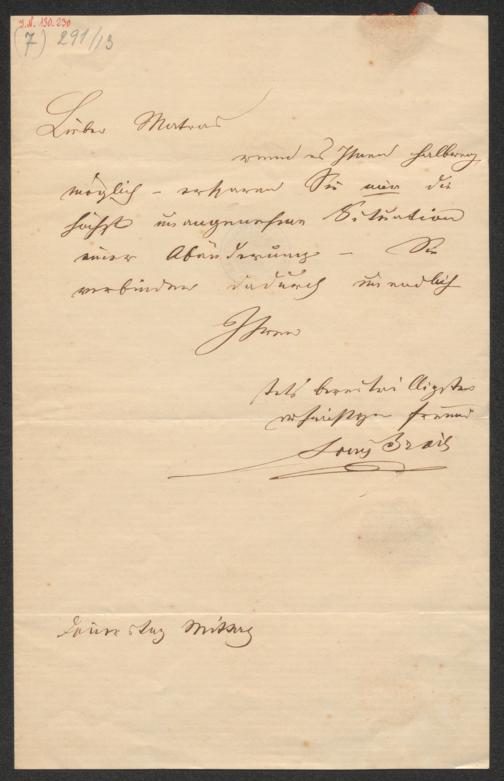 J.N. 130.230
(7) 291/13
Lieber Matras
wenn es Ihnen halbweg
möglich – ersparen Sie mir die
höchst unangenehme Situation
einer Abänderung – Sie
verbinden dadurch unendlich
Ihren
stets bereitwilligsten
Freund
Donnerstag Mittag